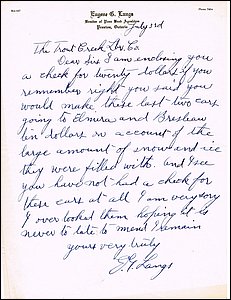 Eugene G. Langs
July 3rd
The Trout Creek Lbr. Co
Dear Sir I am enclosing you
a check for twenty dollars if you
remember right you said you
would make these last two cars
going to Elmira and Breslau
in dollars on account of the
large amount of snow and ice
they were filled with. and I see
you have not had a check for
these cars at all I am very sory
I over looked them hoping it is
never to late to mend I remain
yours very truly
E.G. Langs